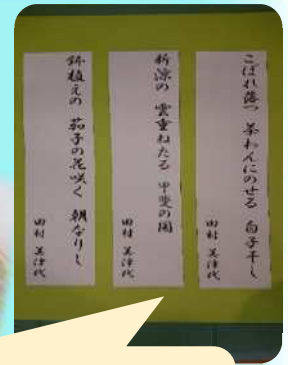 こぼれ落つ 茶わんにのせる 白子干し
田村 美津代
新涼の 雲重ねたる 甲斐の国
田村 美津代
鉢植えの 茄子の花咲く 朝なりし
田村 美津代